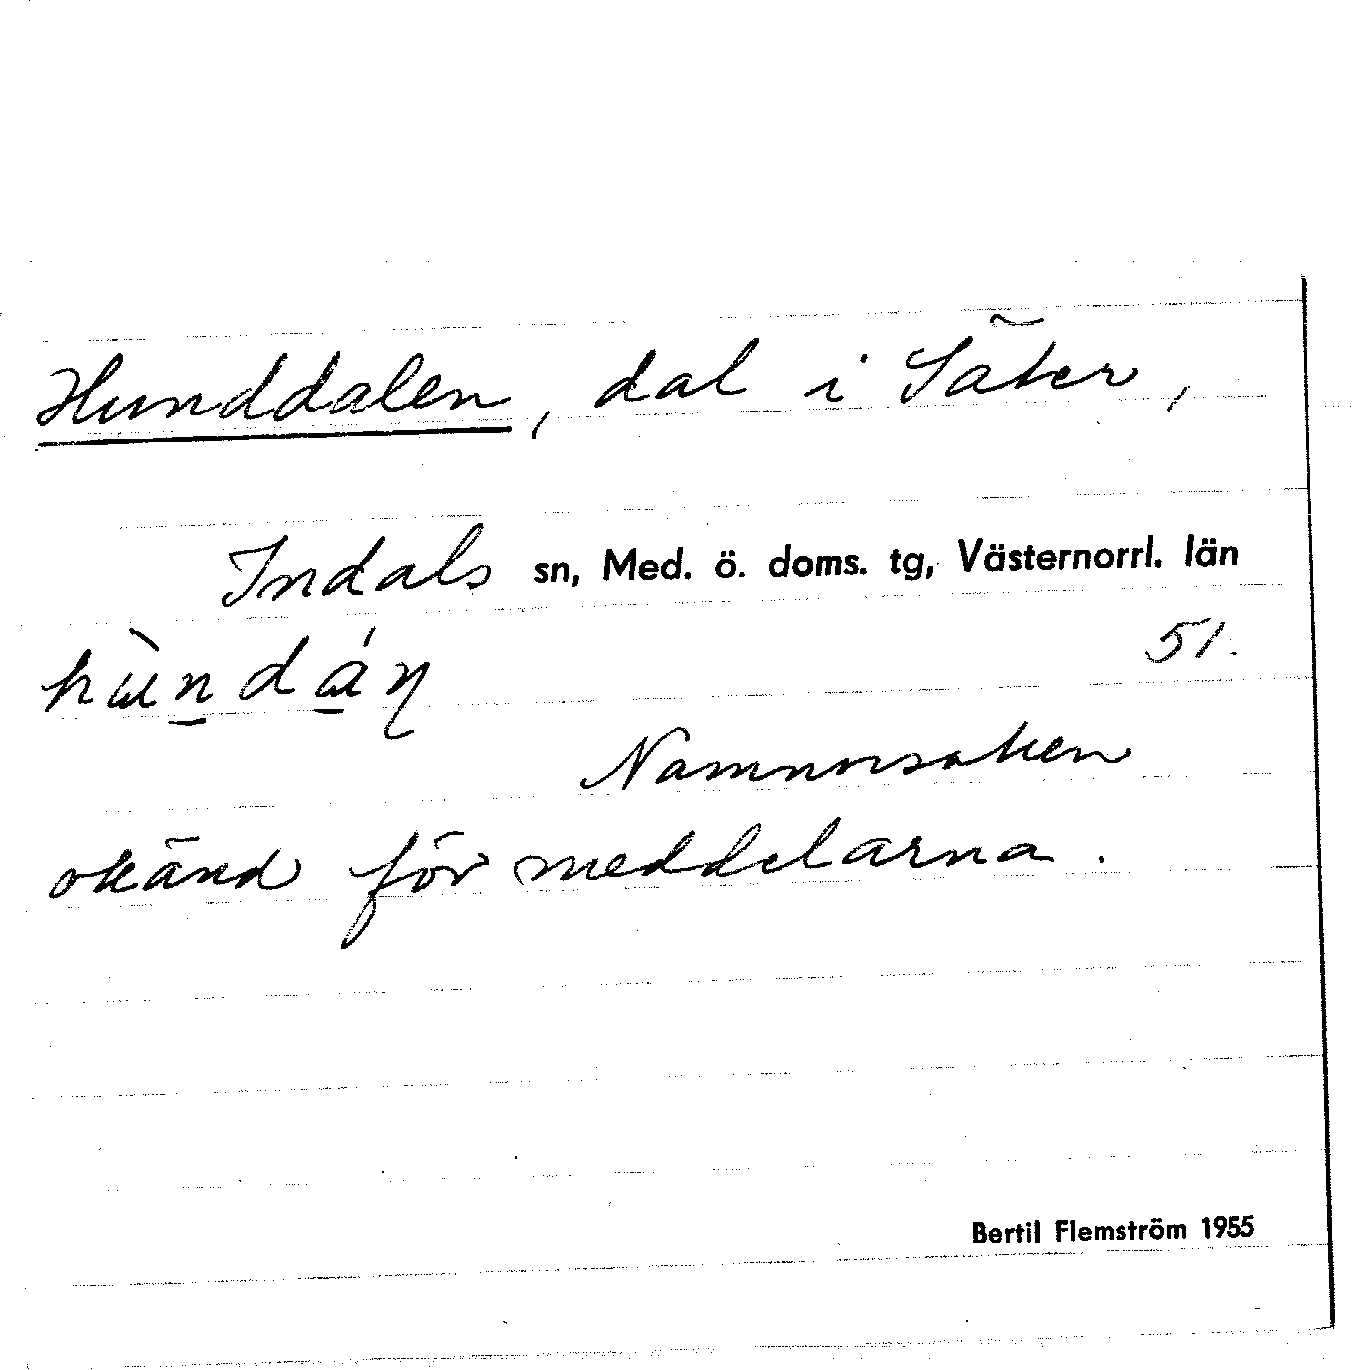 Hunddalen, dal i Säter,
Indals sn, Med. ö. doms. tg, Västernorrl. län
51.
hùndáṇ
Namnorsaken
okänd för meddelarna.
Bertil Flemström 1955